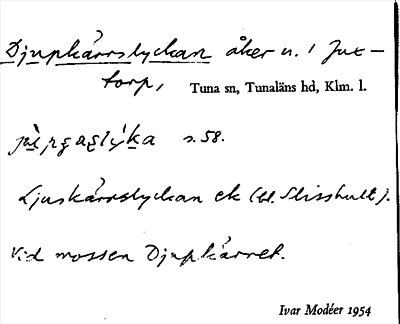 Djupkärrslyckan åker u. 1 Jut-
torp, Tuna sn, Tunaläns hd, Klm. l.
s. 58.
Ljuskärrslyckan ek (bl. Slisshult).
Vid mossen Djupkärret.
Ivar Modéer 1954